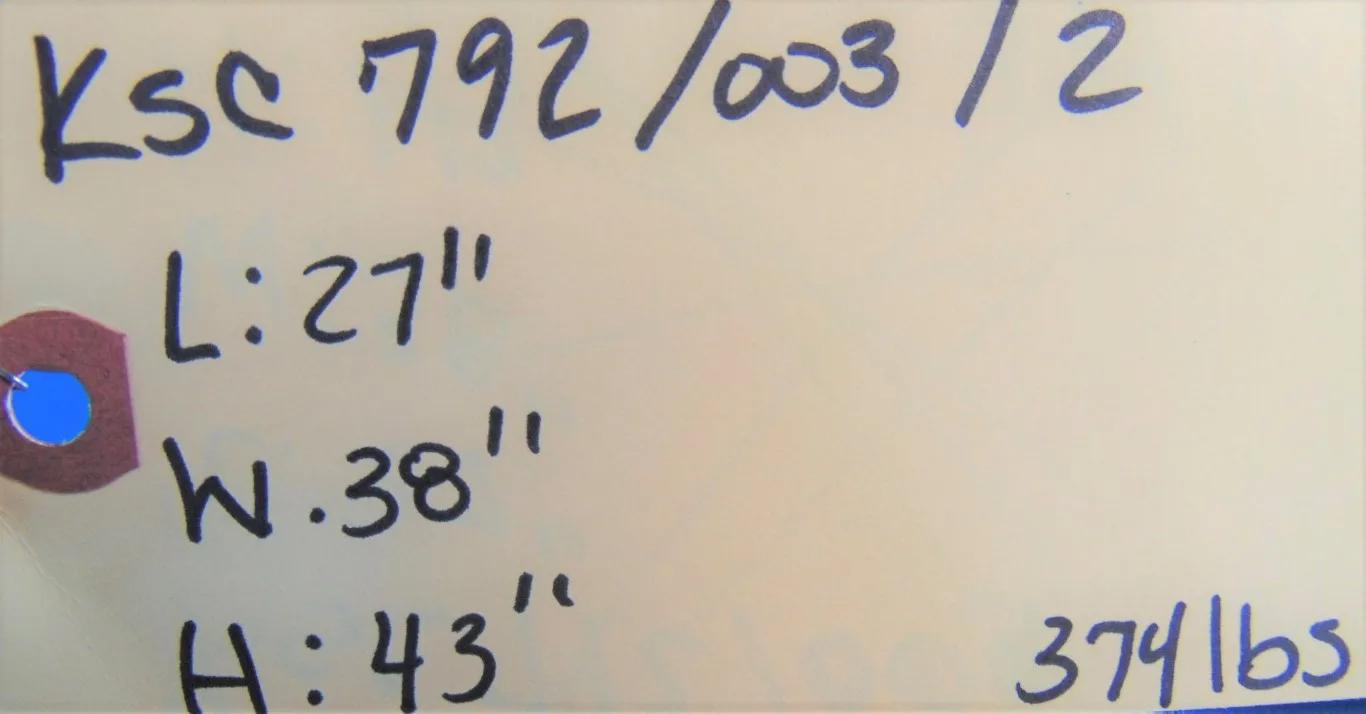 KSC 792/003/2
L: 27"
W. 38"
H: 43"
374 lbs